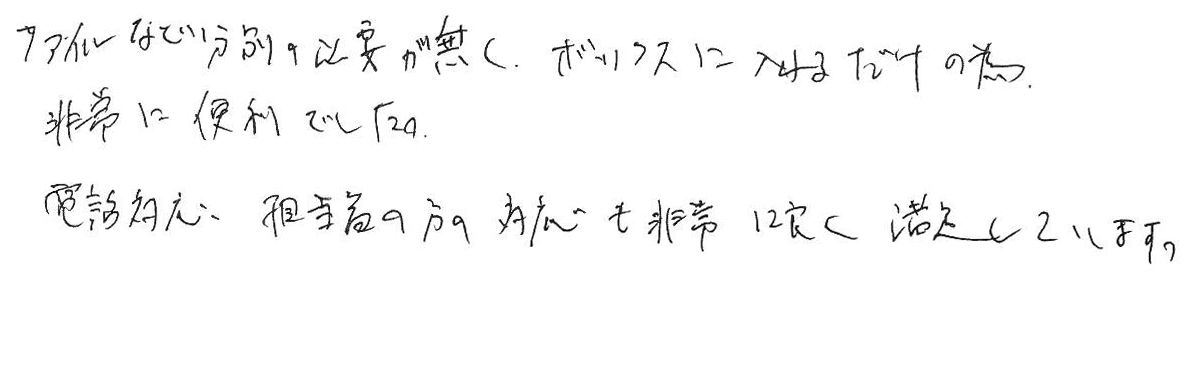 ファイルなどの分別の必要が無く、ボックスに入れるだけの為、
非常に便利でした。
電話対応、担当者の方の対応も非常に良く満足しています。